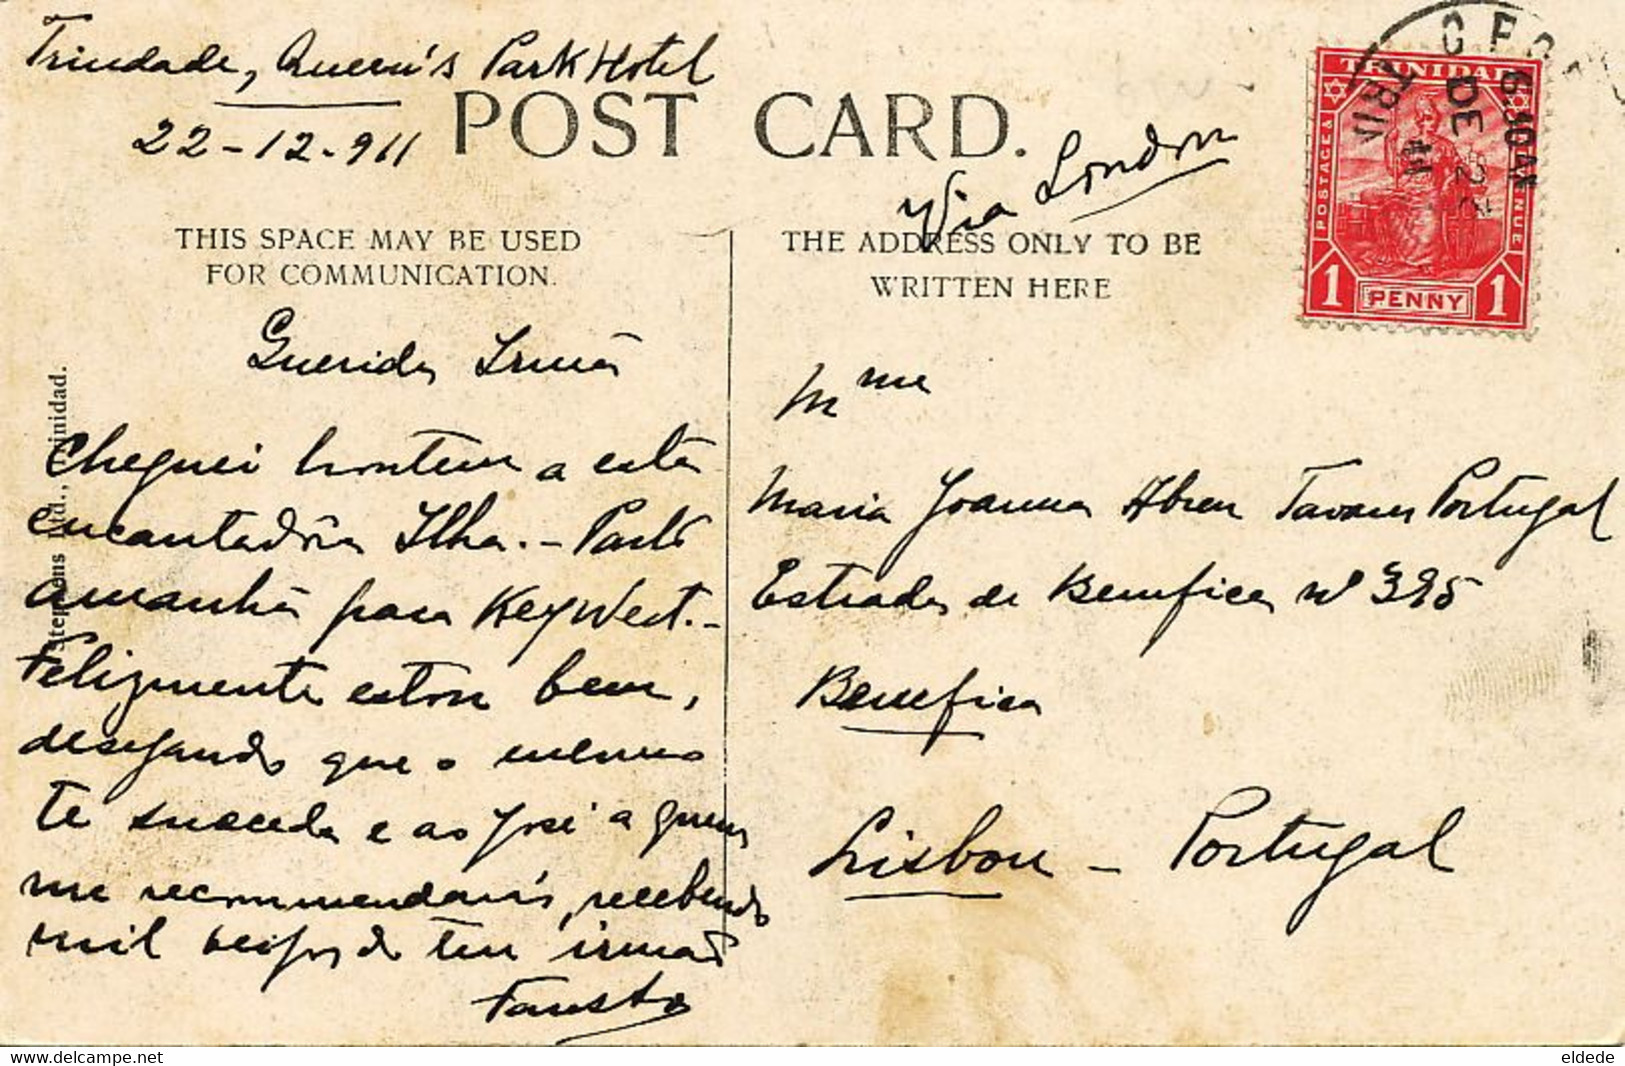 Trindade, Queen's Park Hotel
22-12-911
POST CARD.
Via London
THIS SPACE MAY BE USED
FOR COMMUNICATION.
THE ADDRESS ONLY TO BE
WRITTEN HERE
TRINIDAD
POSTAGE &
REVENUE
1 PENNY 1
G.P.O.
6.30 AM
DE 23
11
TRIN
Querida Irmã
Cheguei hontem a esta
encantadôra Ilha. - Parto
amanhã para Key West. -
Felizmente estou bem,
desejando que o mesmo
te suceda e ao José a quem
me recommendarás, recebendo
mil beijos do teu irmão
Fausto
Mme
Maria Joanna Abreu Tavares Portugal
Estrada de Bemfica nº 395
Bemfica
Lisbou - Portugal
Stephens Ltd., Trinidad.
eldede